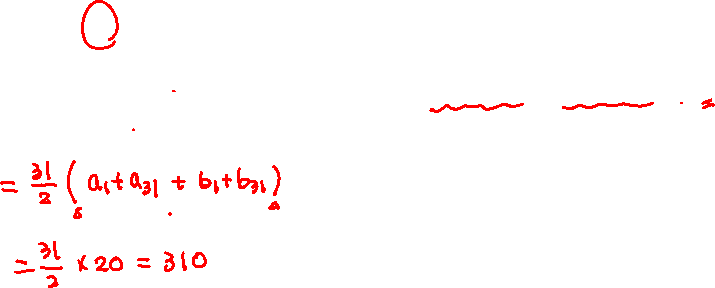 = 31/2 ( a₁ + a₃₁ + b₁ + b₃₁ )
= 31/2 × 20 = 310